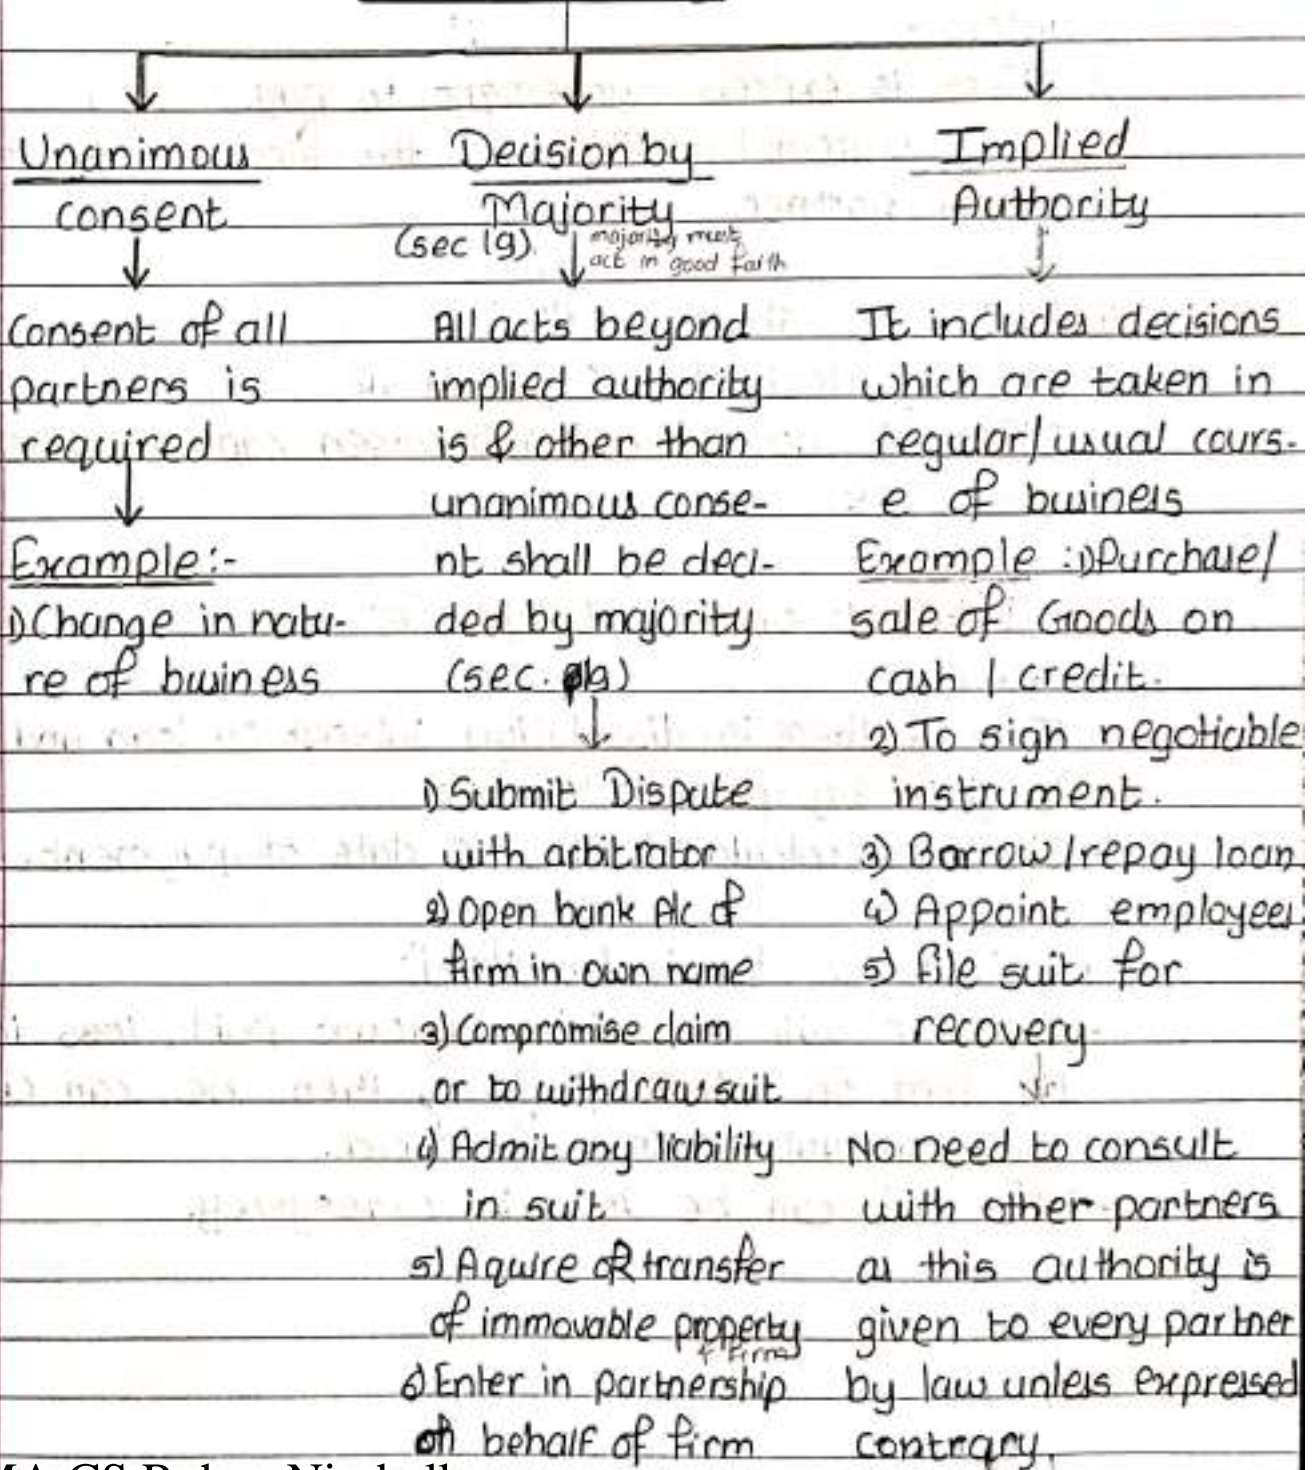 Unanimous
consent
Consent of all
partners is
required
Example:-
1) Change in natu-
re of business
Decision by
Majority
(sec 19)
majority must
act in good faith
All acts beyond
implied authority
is & other than
unanimous conse-
nt shall be deci-
ded by majority
(sec. 19)
1) Submit Dispute
with arbitrator
2) Open bank A/c of
firm in own name
3) Compromise claim
or to withdraw suit
4) Admit any liability
in suit
5) Aquire OR transfer
of immovable property
of firm
6) Enter in partnership
on behalf of firm
Implied
Authority
It includes decisions
which are taken in
regular/usual cours-
e of business
Example :1) Purchase/
sale of Goods on
cash / credit.
2) To sign negotiable
instrument.
3) Borrow/repay loan
4) Appoint employees
5) file suit for
recovery
No need to consult
with other partners
as this authority is
given to every partner
by law unless expressed
contrary.